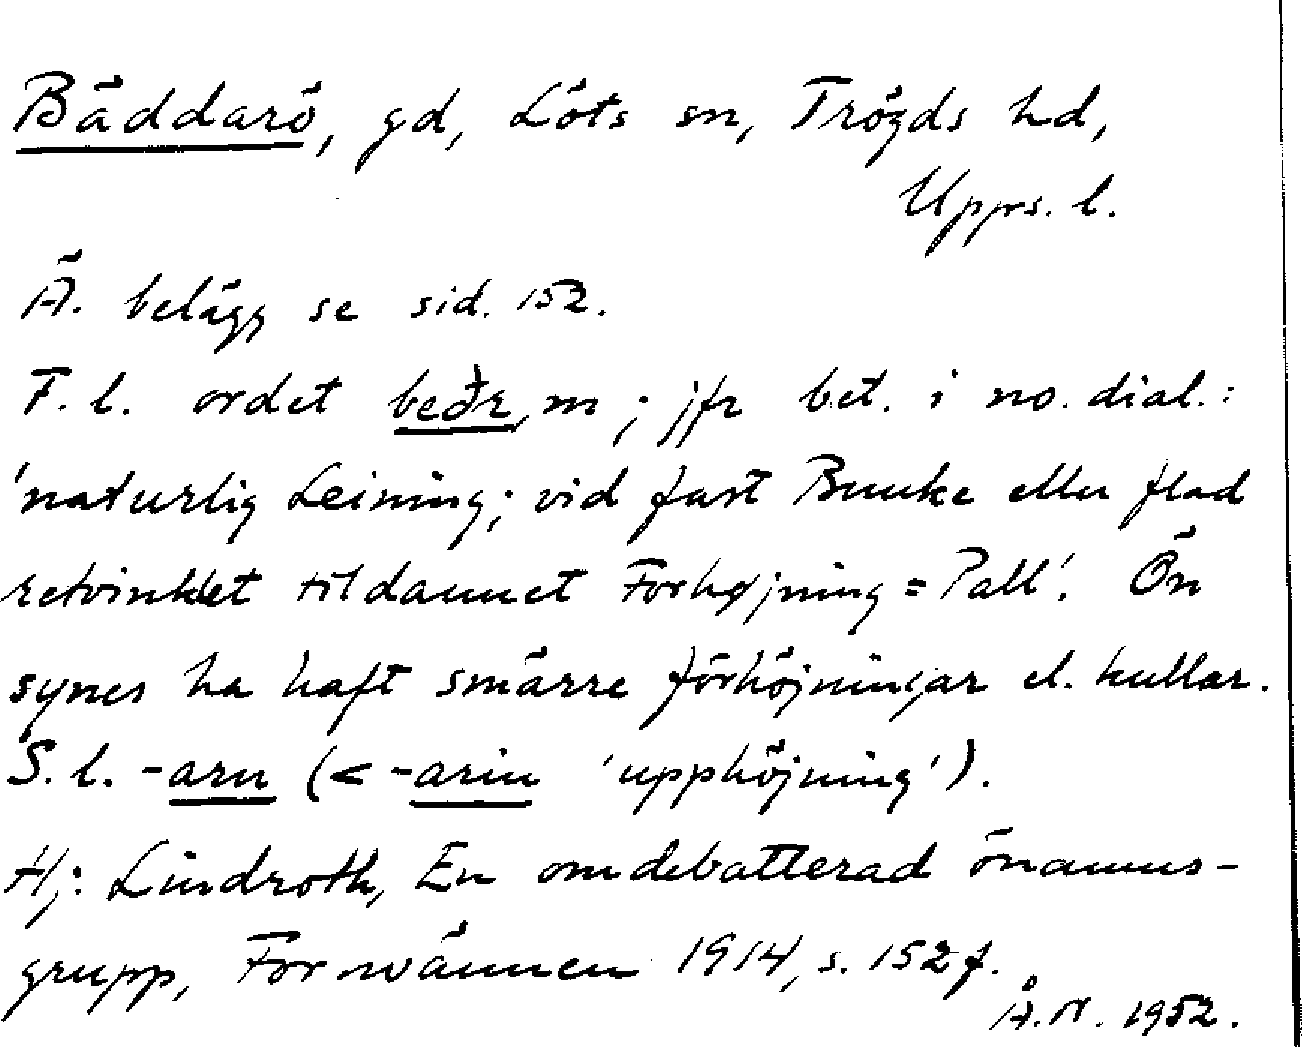 Bäddarö, gd, Löts sn, Trögds hd,
Upps. l.
Ä. belägg se sid. 152.
F. l. ordet beðr, m; jfr bet. i no. dial.:
'naturlig Leining; vid fast Bænke eller flad
retvinklet tildannet Forhøjning = Pall'. Ön
synes ha haft smärre förhöjningar el. kullar.
S. l. -arn (< -arin 'upphöjning').
Hj. Lindroth, En omdebatterad önamns-
grupp, Fornvännen 1914, s. 152 f.
Å. N. 1952.